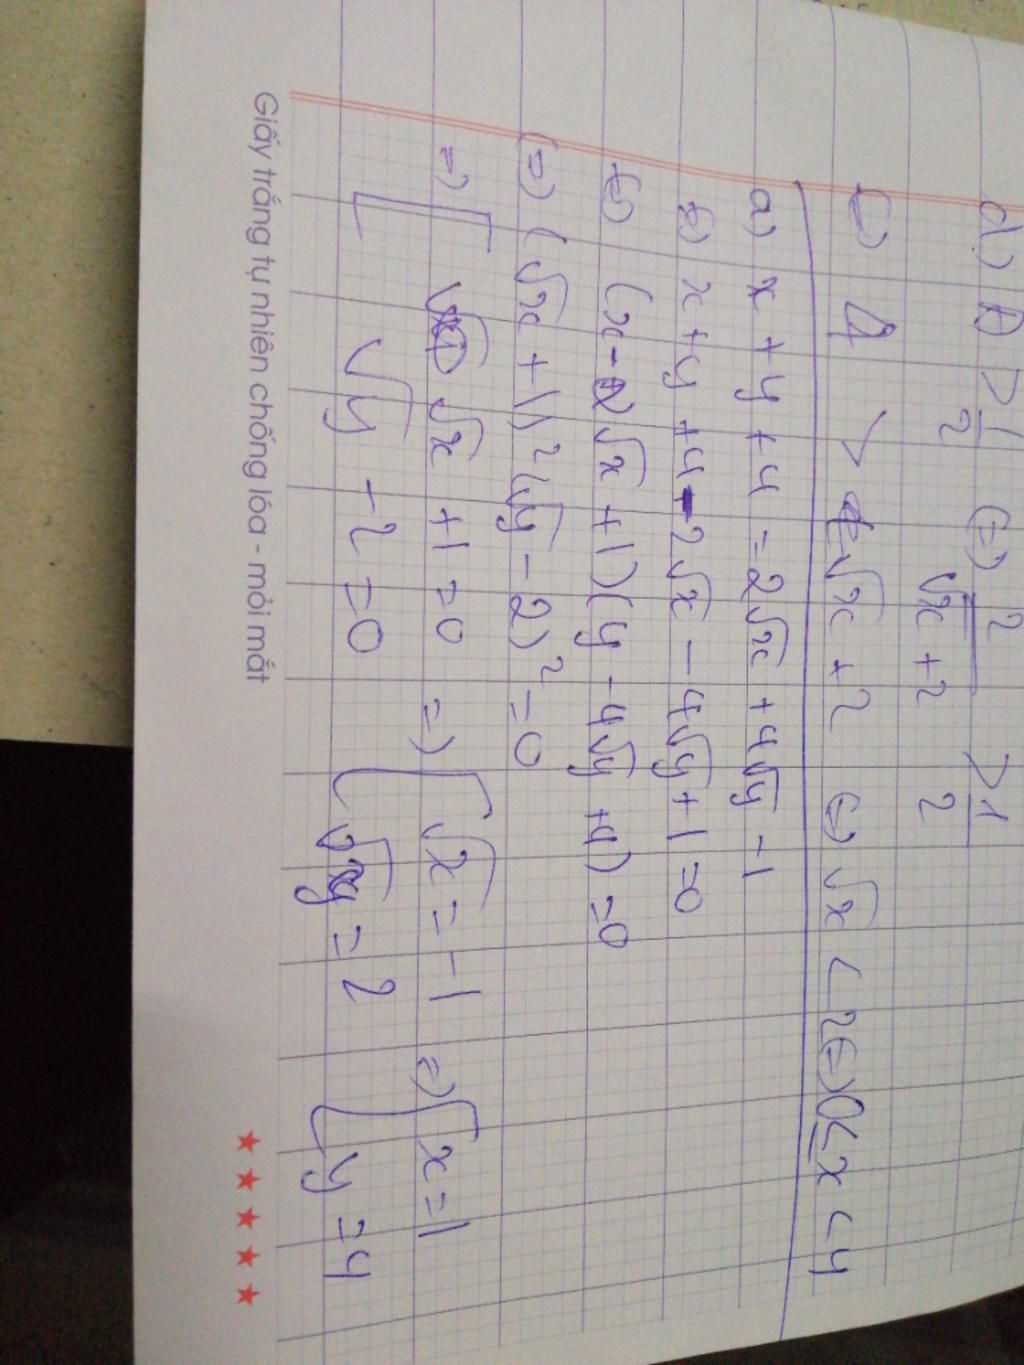 d) A > 1/2 (=) 2/(√x + 2) > 1/2
(=) 4 > √x + 2 (=) √x < 2 (=) 0 ≤ x < 4
a) x + y + 4 = 2√x + 4√y - 1
x + y + 4 - 2√x - 4√y + 1 = 0
(x - 2√x + 1)(y - 4√y + 4) = 0
(=) (√x + 1)² (√y - 2)² = 0
=) [ √x + 1 = 0 =) [ √x = -1 =) [ x = 1
√y - 2 = 0 √y = 2 y = 4
Giấy trắng tự nhiên chống lóa - mỏi mắt